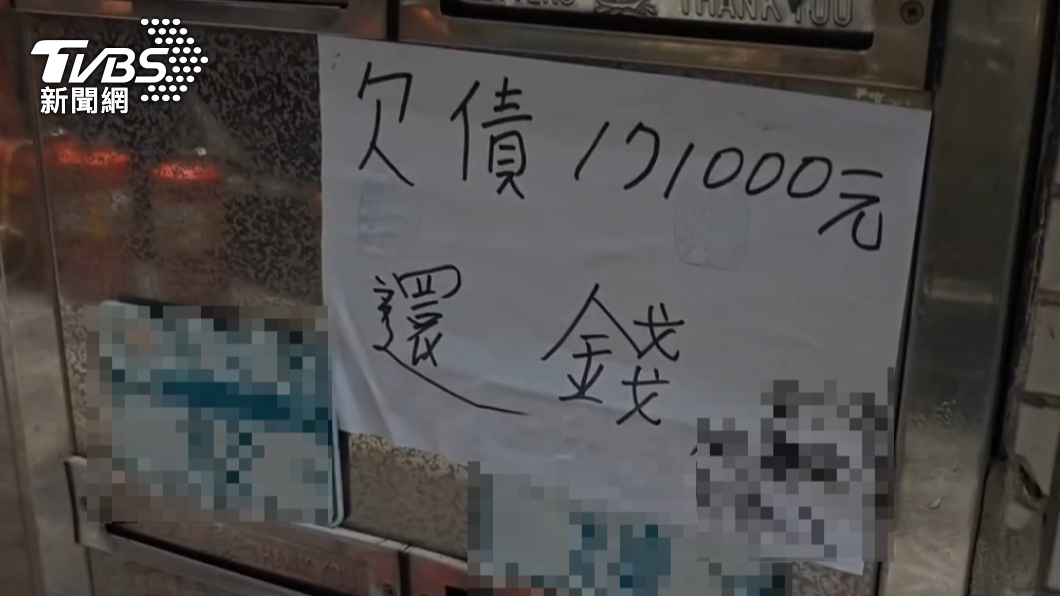 TVBS
新聞網
LETTERS
THANK YOU
欠債171000元
還錢
THANK YOU